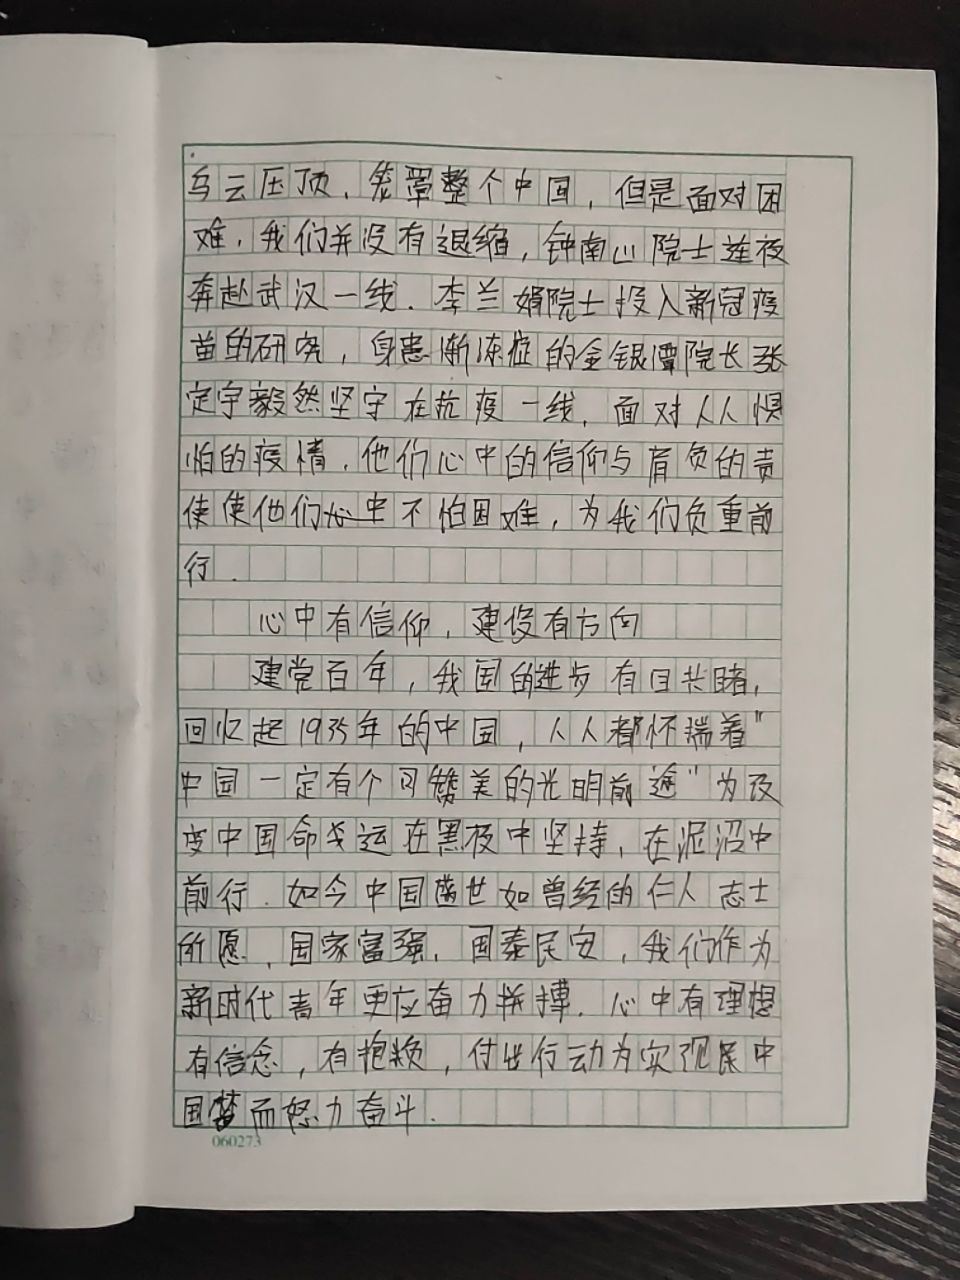 乌云压顶，笼罩整个中国，但是面对困
难，我们并没有退缩，钟南山院士连夜
奔赴武汉一线．李兰娟院士投入新冠疫
苗的研究，身患渐冻症的金银潭院长张
定宇毅然坚守在抗疫一线，面对人人惧
怕的疫情，他们心中的信仰与肩负的责
使使他们心中不怕困难，为我们负重前
行．
心中有信仰，建设有方向
建党百年，我国的进步有目共睹，
回忆起1935年的中国，人人都怀揣着"
中国一定有个可赞美的光明前途"为改
变中国命运在黑夜中坚持，在泥沼中
前行．如今中国盛世如曾经的仁人志士
所愿，国家富强，国泰民安，我们作为
新时代青年更应奋力拼搏．心中有理想
有信念，有抱负，付出行动为实现中
国梦而怒力奋斗．
060273